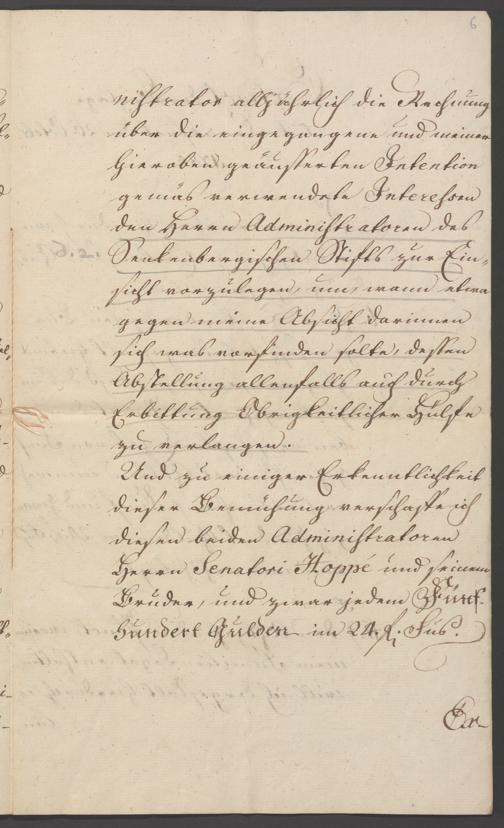 6
nistrator alljährlich die Rechnung
über die eingegangene und meiner
hieroben geäusserten Intention
gemäs verwendete Interessen
den Herrn Administratoren des
Senkenbergischen Stifts zur Ein-
sicht vorzulegen, um, wann etwa
gegen meine Absicht darinnen
sich was vorfinden solte, dessen
Abstellung allenfalls auch durch
Erbittung Obrigkeitlicher Hülfe
zu verlangen.
Und zu einiger Erkenntlichkeit
dieser Bemühung verschaffe ich
diesen beiden Administratoren
Herrn Senatori Hoppé und seinem
Bruder, und zwar jedem Fünf-
hundert Gulden im 24. f. Fus.